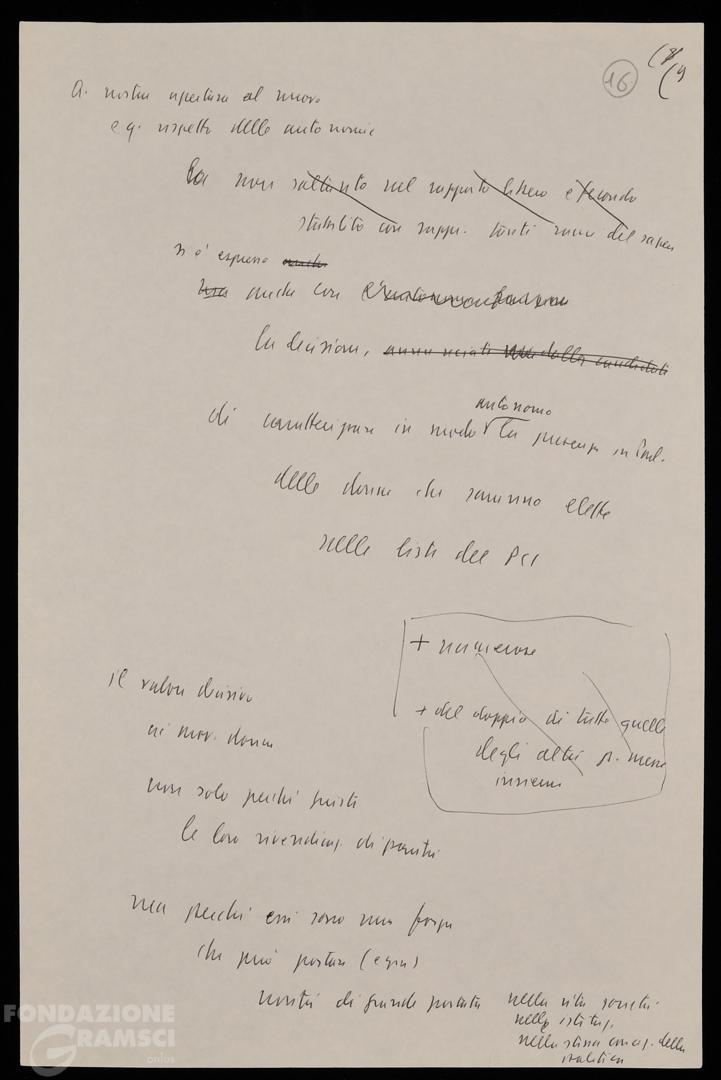 16.
a. nostra apertura al nuovo
e q. rispetto delle autonomie
non soltanto nel rapporto libero e fecondo
stabilito con rappr. tanti rami del sapere
si è espresso anche
ma anche con
la decisione,
autonomo
di caratterizzare in modo la presenza in Parl.
delle donne che saranno elette
nelle liste del PCI
+ numerose
+ del doppio di tutte quelle
degli altri p. messi
insieme
il valore decisivo
ai mov. donne
non solo perché giuste
le loro rivendicaz. di parità
ma perché essi sono una forza
che può portare (e già)
novità di grande portata nella vita società
nelle istituz.
nella stessa concez. della
politica
FONDAZIONE
GRAMSCI
onlus